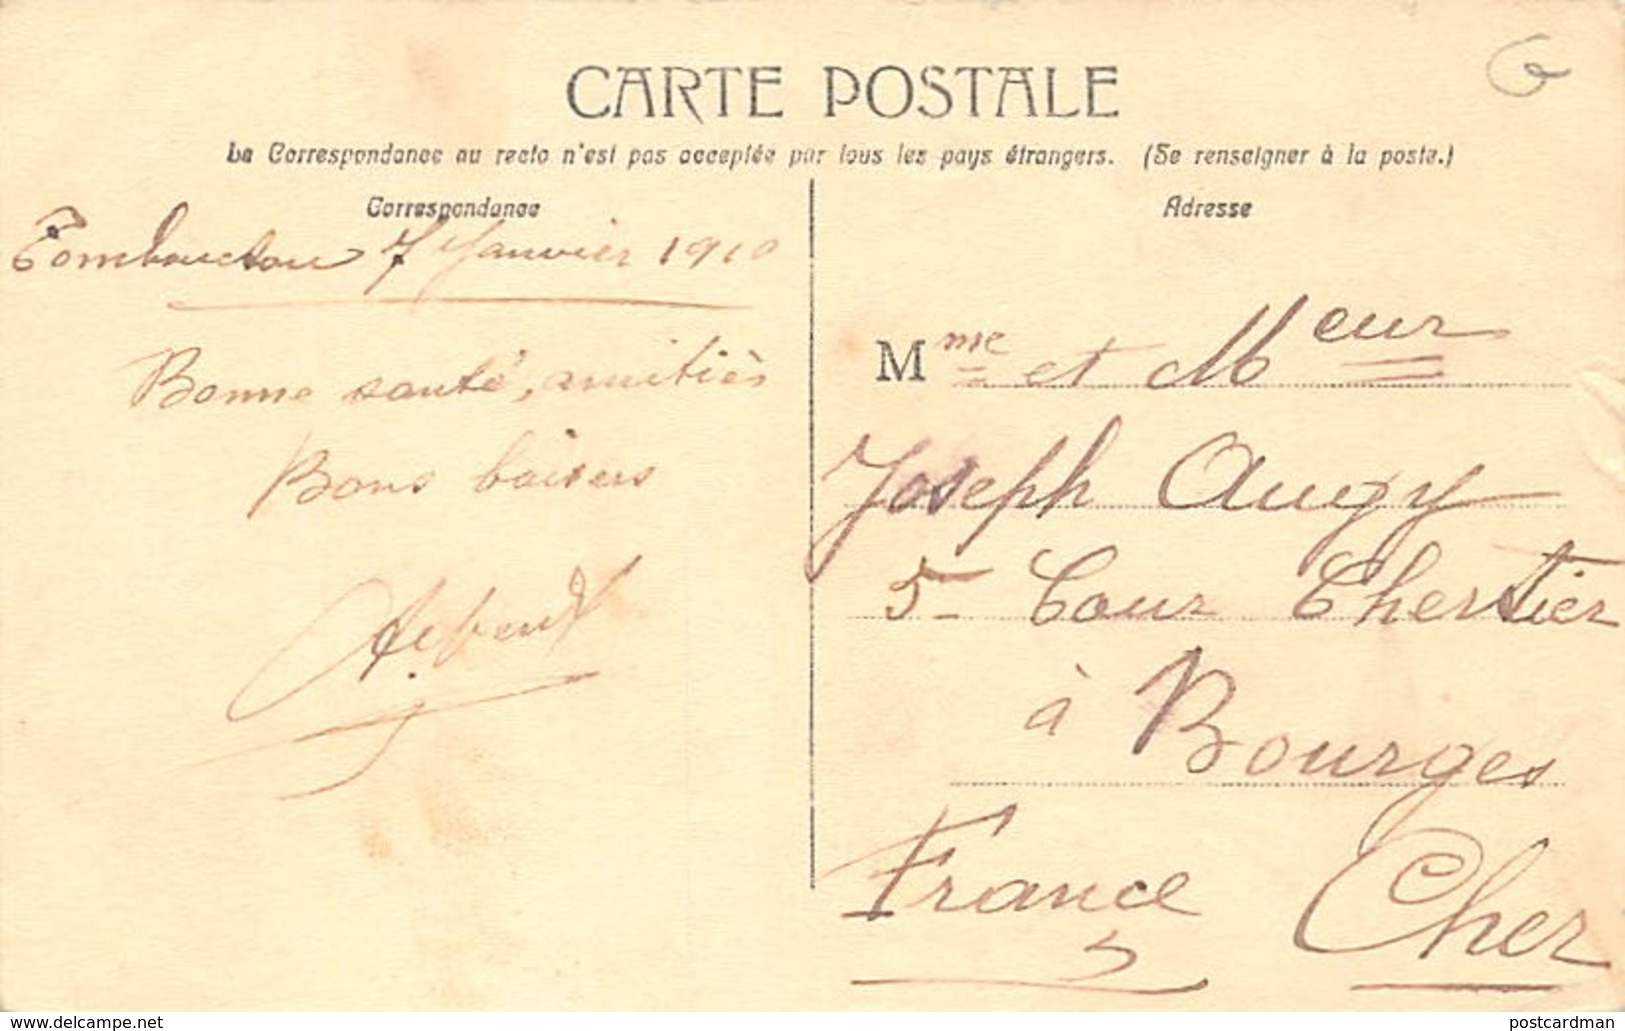 CARTE POSTALE
La Correspondance au recto n'est pas acceptée par tous les pays étrangers. (Se renseigner à la poste.)
Correspondance
Tombouctou 7 Janvier 1910
Bonne santé, amitiès
Bons baisers
Adresse
Mme et Meur
Joseph Augy
5 - Cour Chertier
à Bourges
France Cher
www.delcampe.net
postcardman